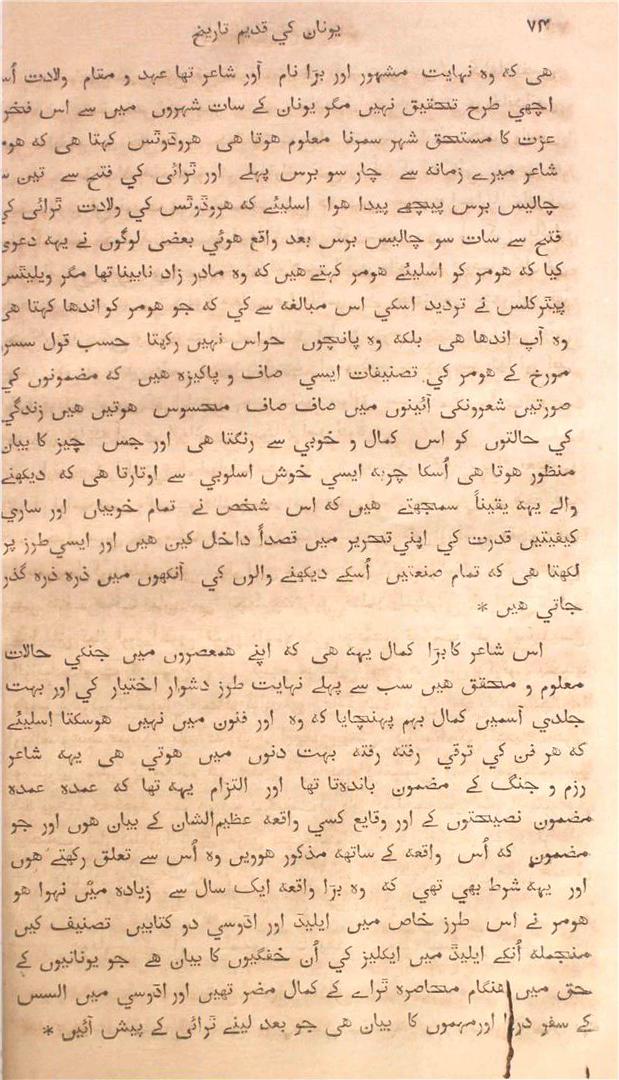 ۷۴ یونان کي قدیم تاریخ
هی که وہ نہایت مشہور اور بڑا نام آور شاعر تھا عہد و مقام ولادت
اچھي طرح تحقیق نہیں مگر یونان کے سات شہروں میں سے اس فخر
عزت کا مستحق شہر سمرنا معلوم هوتا هی هروڈوٹس کہتا هی که هومر
شاعر میرے زمانه سے چار سو برس پہلے اور ٹرائی کي فتح سے تین
چالیس برس پیچھے پیدا هوا اسلیئے که هروڈوٹس کي ولادت ٹرائی کي
فتح سے سات سو چالیس برس بعد واقع هوئي بعضی لوگوں نے یہه دعوی
کیا که هومر کو اسلیئے هومر کہتے هیں که وہ مادر زاد نابینا تھا مگر ویلیٹس
پیٹرکلس نے تردید اسکي اس مبالغه سے کي که جو هومر کو اندها کہتا هی
وہ آپ اندها هی بلکه وہ پانچوں حواس نہیں رکھتا حسب قول سسرو
مورخ کے هومر کي تصنیفات ایسي صاف و پاکیزہ هیں که مضمونوں کي
صورتیں شعرونکي آئینوں میں صاف صاف محسوس هوتیں هیں زندگي
کي حالتوں کو اس کمال و خوبي سے رنگتا هی اور جس چیز کا بیان
منظور هوتا هی اُسکا چربه ایسي خوش اسلوبي سے اوتارتا هی که دیکھنے
والے یہه یقیناً سمجھتے هیں که اس شخص نے تمام خوبیاں اور ساري
کیفیتیں قدرت کي اپني تحریر میں قصداً داخل کیں هیں اور ایسي طرز پر
لکھتا هی که تمام صنعتیں اُسکے دیکھنے والوں کي آنکھوں میں ذرہ ذرہ گذر
جاتي هیں *
اس شاعر کا بڑا کمال یہه هی که اپنے همعصروں میں جنکي حالات
معلوم و محقق هیں سب سے پہلے نہایت طرز دشوار اختیار کي اور بہت
جلدي آسمیں کمال بہم پہنچایا که وہ اور فنون میں نہیں هوسکتا اسلیئے
که هر فن کي ترقي رفته رفته بہت دنوں میں هوتي هی یہه شاعر
رزم و جنگ کے مضمون باندهتا تھا اور التزام یہه تھا که عمدہ عمدہ
مضمون نصیحتوں کے اور وقایع کسي واقعه عظیم‌الشان کے بیان هوں اور جو
مضمون که اُس واقعه کے ساتهه مذکور هوویں وہ اُس سے تعلق رکھتے هوں
اور یہه شرط بھي تھي که وہ بڑا واقعه ایک سال سے زیادہ میں نہوا هو
هومر نے اس طرز خاص میں ایلیڈ اور اڈوسي دو کتابیں تصنیف کیں
منجمله اُنکے ایلیڈ میں ایکلیز کي اُن خفگیوں کا بیان هے جو یونانیوں کے
حق میں هنگام محاصرہ ٹراے کے کمال مضر تھیں اور اڈوسي میں السس
کے سفر دریا اور مہموں کا بیان هی جو بعد لینے ٹرائی کے پیش آئیں *